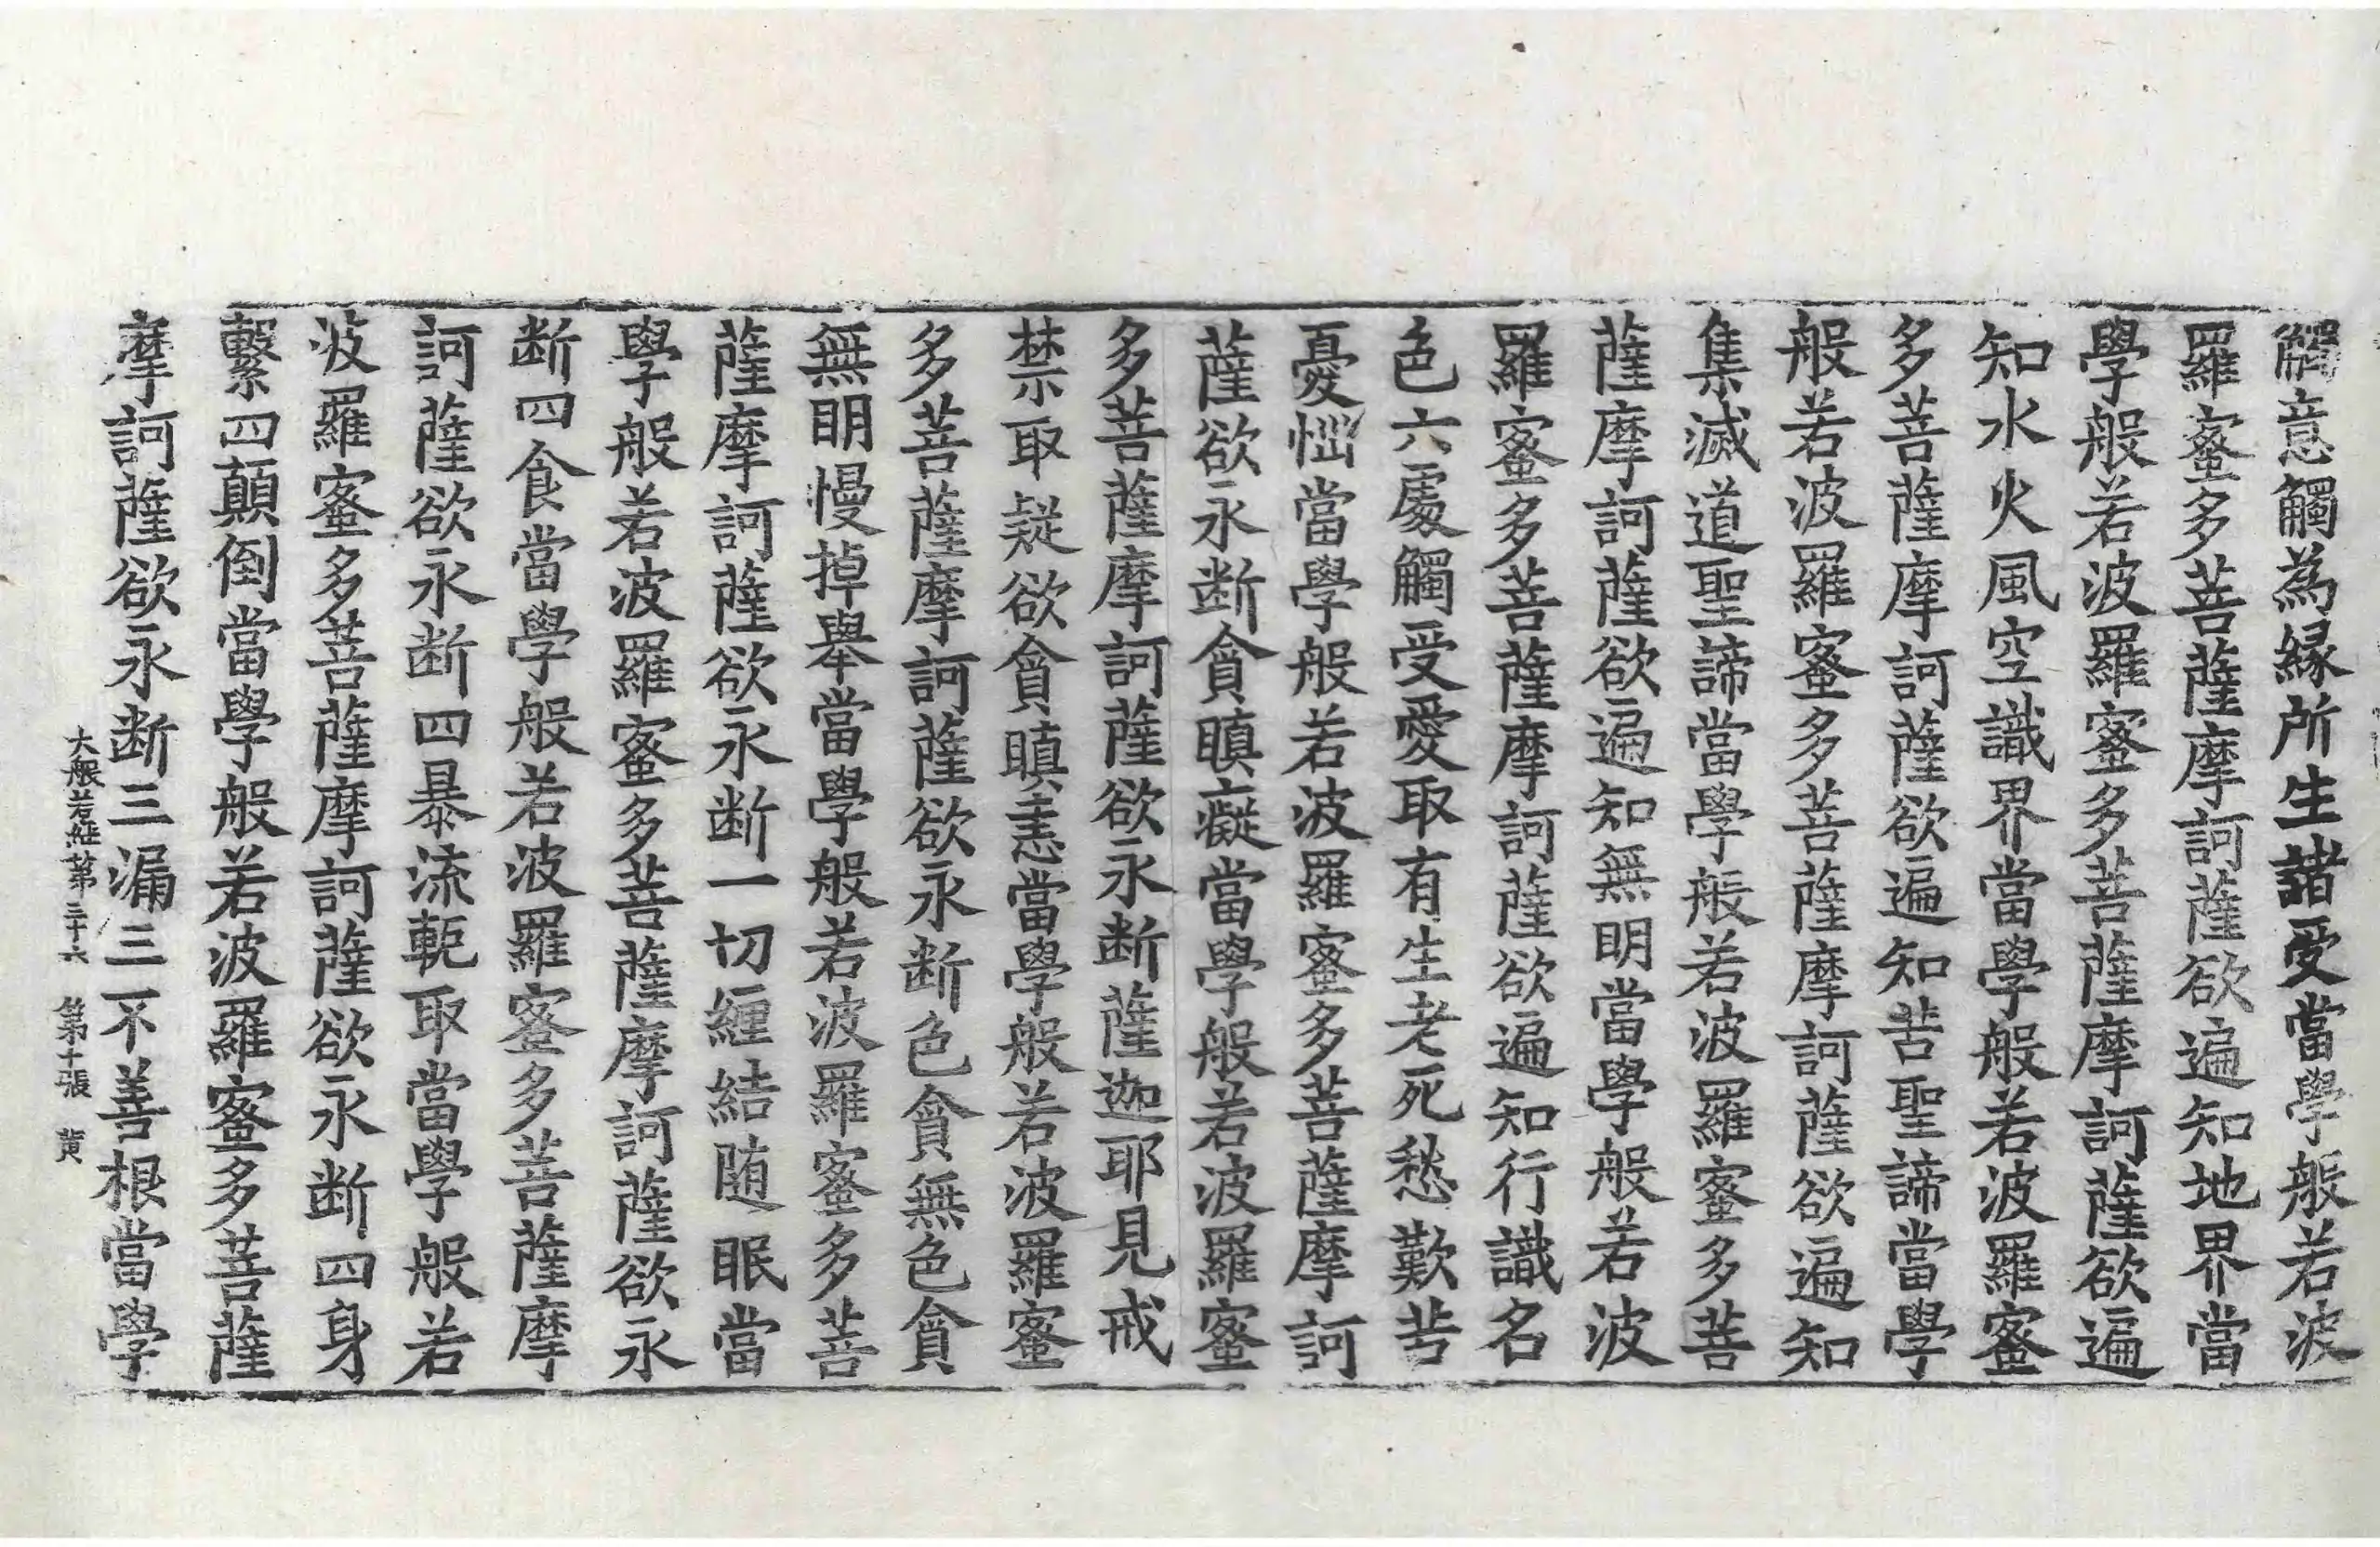 觸意觸為緣所生諸受當學般若波
羅蜜多菩薩摩訶薩欲遍知地界當
學般若波羅蜜多菩薩摩訶薩欲遍
知水火風空識界當學般若波羅蜜
多菩薩摩訶薩欲遍知苦聖諦當學
般若波羅蜜多菩薩摩訶薩欲遍知
集滅道聖諦當學般若波羅蜜多菩
薩摩訶薩欲遍知無明當學般若波
羅蜜多菩薩摩訶薩欲遍知行識名
色六處觸受愛取有生老死愁歎苦
憂惱當學般若波羅蜜多菩薩摩訶
薩欲永断貪瞋癡當學般若波羅蜜
多菩薩摩訶薩欲永断薩迦耶見戒
禁取疑欲貪瞋恚當學般若波羅蜜
多菩薩摩訶薩欲永断色貪無色貪
無明慢掉舉當學般若波羅蜜多菩
薩摩訶薩欲永断一切纏結随眠當
學般若波羅蜜多菩薩摩訶薩欲永
断四食當學般若波羅蜜多菩薩摩
訶薩欲永断四暴流軛取當學般若
波羅蜜多菩薩摩訶薩欲永断四身
繫四顛倒當學般若波羅蜜多菩薩
摩訶薩欲永断三漏三不善根當學
大般若經第三十六 第十張 黃